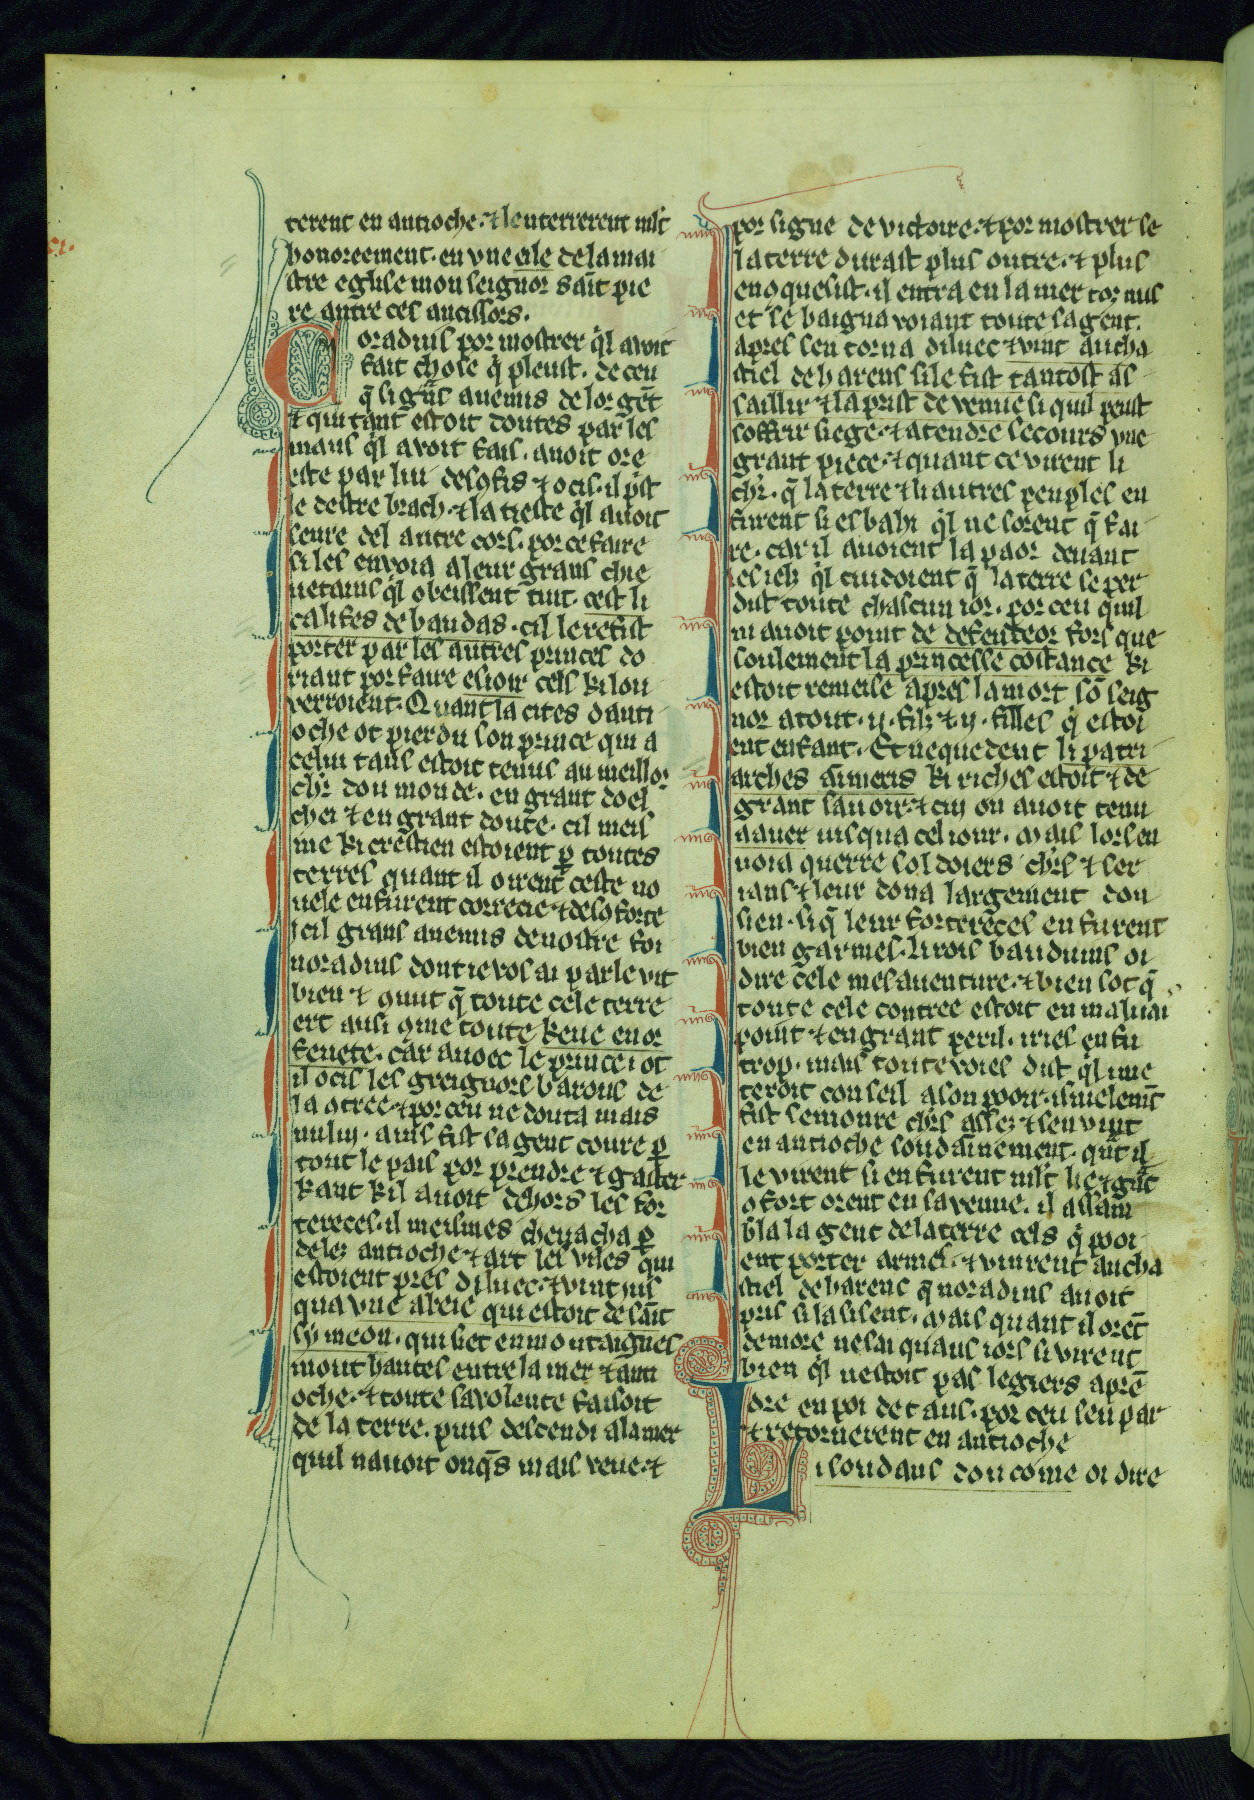 terent en antioche· ⁊ lenterrerent mlt̃
honoreement· en vne eile de la mai
stre eglise mon seignor saĩt pie
re antre ces ancissors.
Noradins por mostrer q̃l avoit
fait chose q̃ pleust· de ceu
q̃ si gñs anemis de lor gẽt
⁊ qui tant estoit doutes par les
maus q̃l avoit fais· avoit ore
este par lui desꝯfis ⁊ ocis· il pͥst
le destre brach· ⁊ la tieste q̃l avoit
seure del autre cors· por ce faire
si les envoia a leur grans chie
vetains q̃l obeissent tuit· cest li
califes de baudas· cil le refist
porter par les autres princes do
riant por faire esioir cels ki lou
verroient· Quant la cites danti
oche ot pierdu son prince qui a
celui tans estoit tenus au meillor
chr̃ dou monde· en grant doel
chei ⁊ en grant doute· cil meis
me ki crestien estoient ꝑ toutes
terres quant il oirent ceste no
vele en furent correcie ⁊ desꝯforte
icil grans anemis de nostre foi
noradins dont ie vos ai parle vit
bien ⁊ ꝯnut q̃ toute cele terre
ert ausi ꝯme toute keue en or
fenete· car avoec le prince i ot
il ocis les greignors barons de
la ꝯtree· ⁊ por ceu ne douta mais
nului· ains fist sa gent coure ꝑ
tout le pais por prendre ⁊ gaster
kant kil avoit dehors les for
tereces· il meismes chevacha ꝑ
delez antioche ⁊ art les viles qui
estoient pres diluec· ⁊ vint ius
qua vne abeie qui estoit de saĩt
symeon· qui siet en montaignes
mout hautes entre la mer ⁊ anti
oche· ⁊ toute sa volente faisoit
de la terre· puis descendi a la mer
quil navoit onq̃s mais veue· ⁊
por signe de victoire· ⁊ por mostrer se
la terre durast plus outre· ⁊ plus
en ꝯquesist· il entra en la mer toz nus
et se baigna voiant toute sa gent.
Apres sen torna diluec ⁊ vint au cha
stiel de harenc si le fist tantost as
saillir ⁊ la prist de venue si quil peust
soffrir siege· ⁊ atendre secours vne
grant piece· ⁊ quant ce virent li
chr̃· q̃ la terre ⁊ li autres peuples en
furent si esbahi q̃l ne sorent q̃ fai
re· car il avoient la paor devant
les ielz q̃l cuidoient q̃ la terre se per
dist toute chascun ior· por ceu quil
ni avoit point de defenteor fors que
soulement la princesse costance ki
estoit remeise apres la mort sõ seig
nor atout· ij· filz ⁊ ij· filles q̃ estoi
ent enfant· Et nequedent li patri
arches aimeris ki riches estoit ⁊ de
grant savoir· ⁊ cui on avoit tenu
a aver iusqua cel iour· Mais lors en
voia querre soldoiers chr̃s ⁊ ser
ians ⁊ leur dona largement dou
sien· si q̃ leur forterẽces en furent
bien garnies· li rois bauduins oi
dire cele mesaventure· ⁊ bien sot q̃
toute cele contree estoit en malvai
point ⁊ en grant peril· iries en fu
trop· mais toutevoies dist q̃l i me
teroit conseil a son pooir· isnelemt̃
fist semonre chr̃s assez ⁊ sen vint
en antioche soudainement· qñt il
le virent si en furent mlt̃ lie ⁊ gñt
ꝯfort orent en sa venue· il assam
bla la gent de la terre cels q̃ pooi
ent porter armes· ⁊ vinrent au cha
stiel de harenc q̃ noradins avoit
pris si lasisent· Mais quant il orẽt
demore ne sai quans iors si virent
bien q̃l nestoit pas legiers a prẽ
dre en poi de tans· por ceu sen par
⁊ retornerent en antioche
Li soudans dou coine oi dire